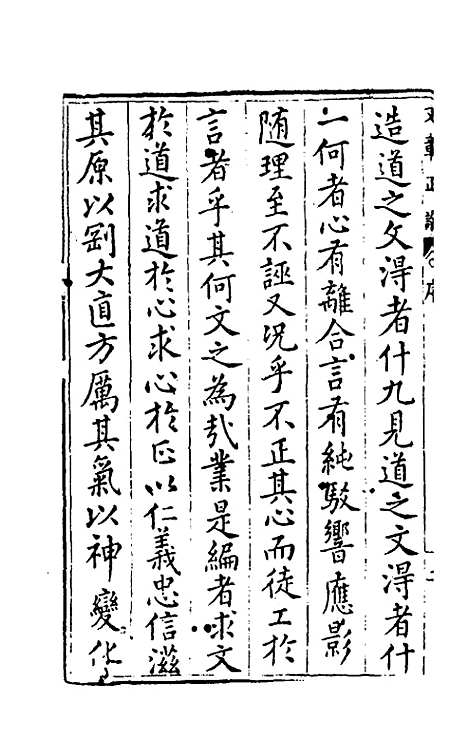 造道之文淂者什九見道之文淂者什
一何者心有離合言有純駁響應影
随理至不誣又况乎不正其心而徒工於
言者乎其何文之為㢤業是編者求文
於道求道於心求心於正以仁義忠信滋
其原以剛大直方厲其氣以神變化
文章正論
序